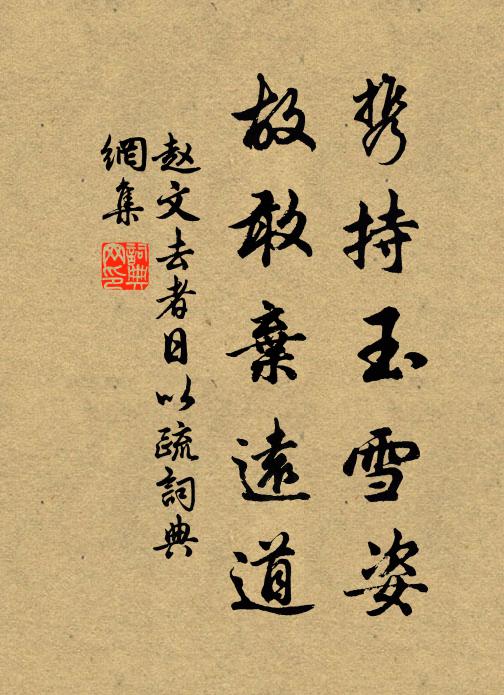 携持玉雪姿
故敢棄遠道
赵文去者日以疏詞典
網集
詞典
网印